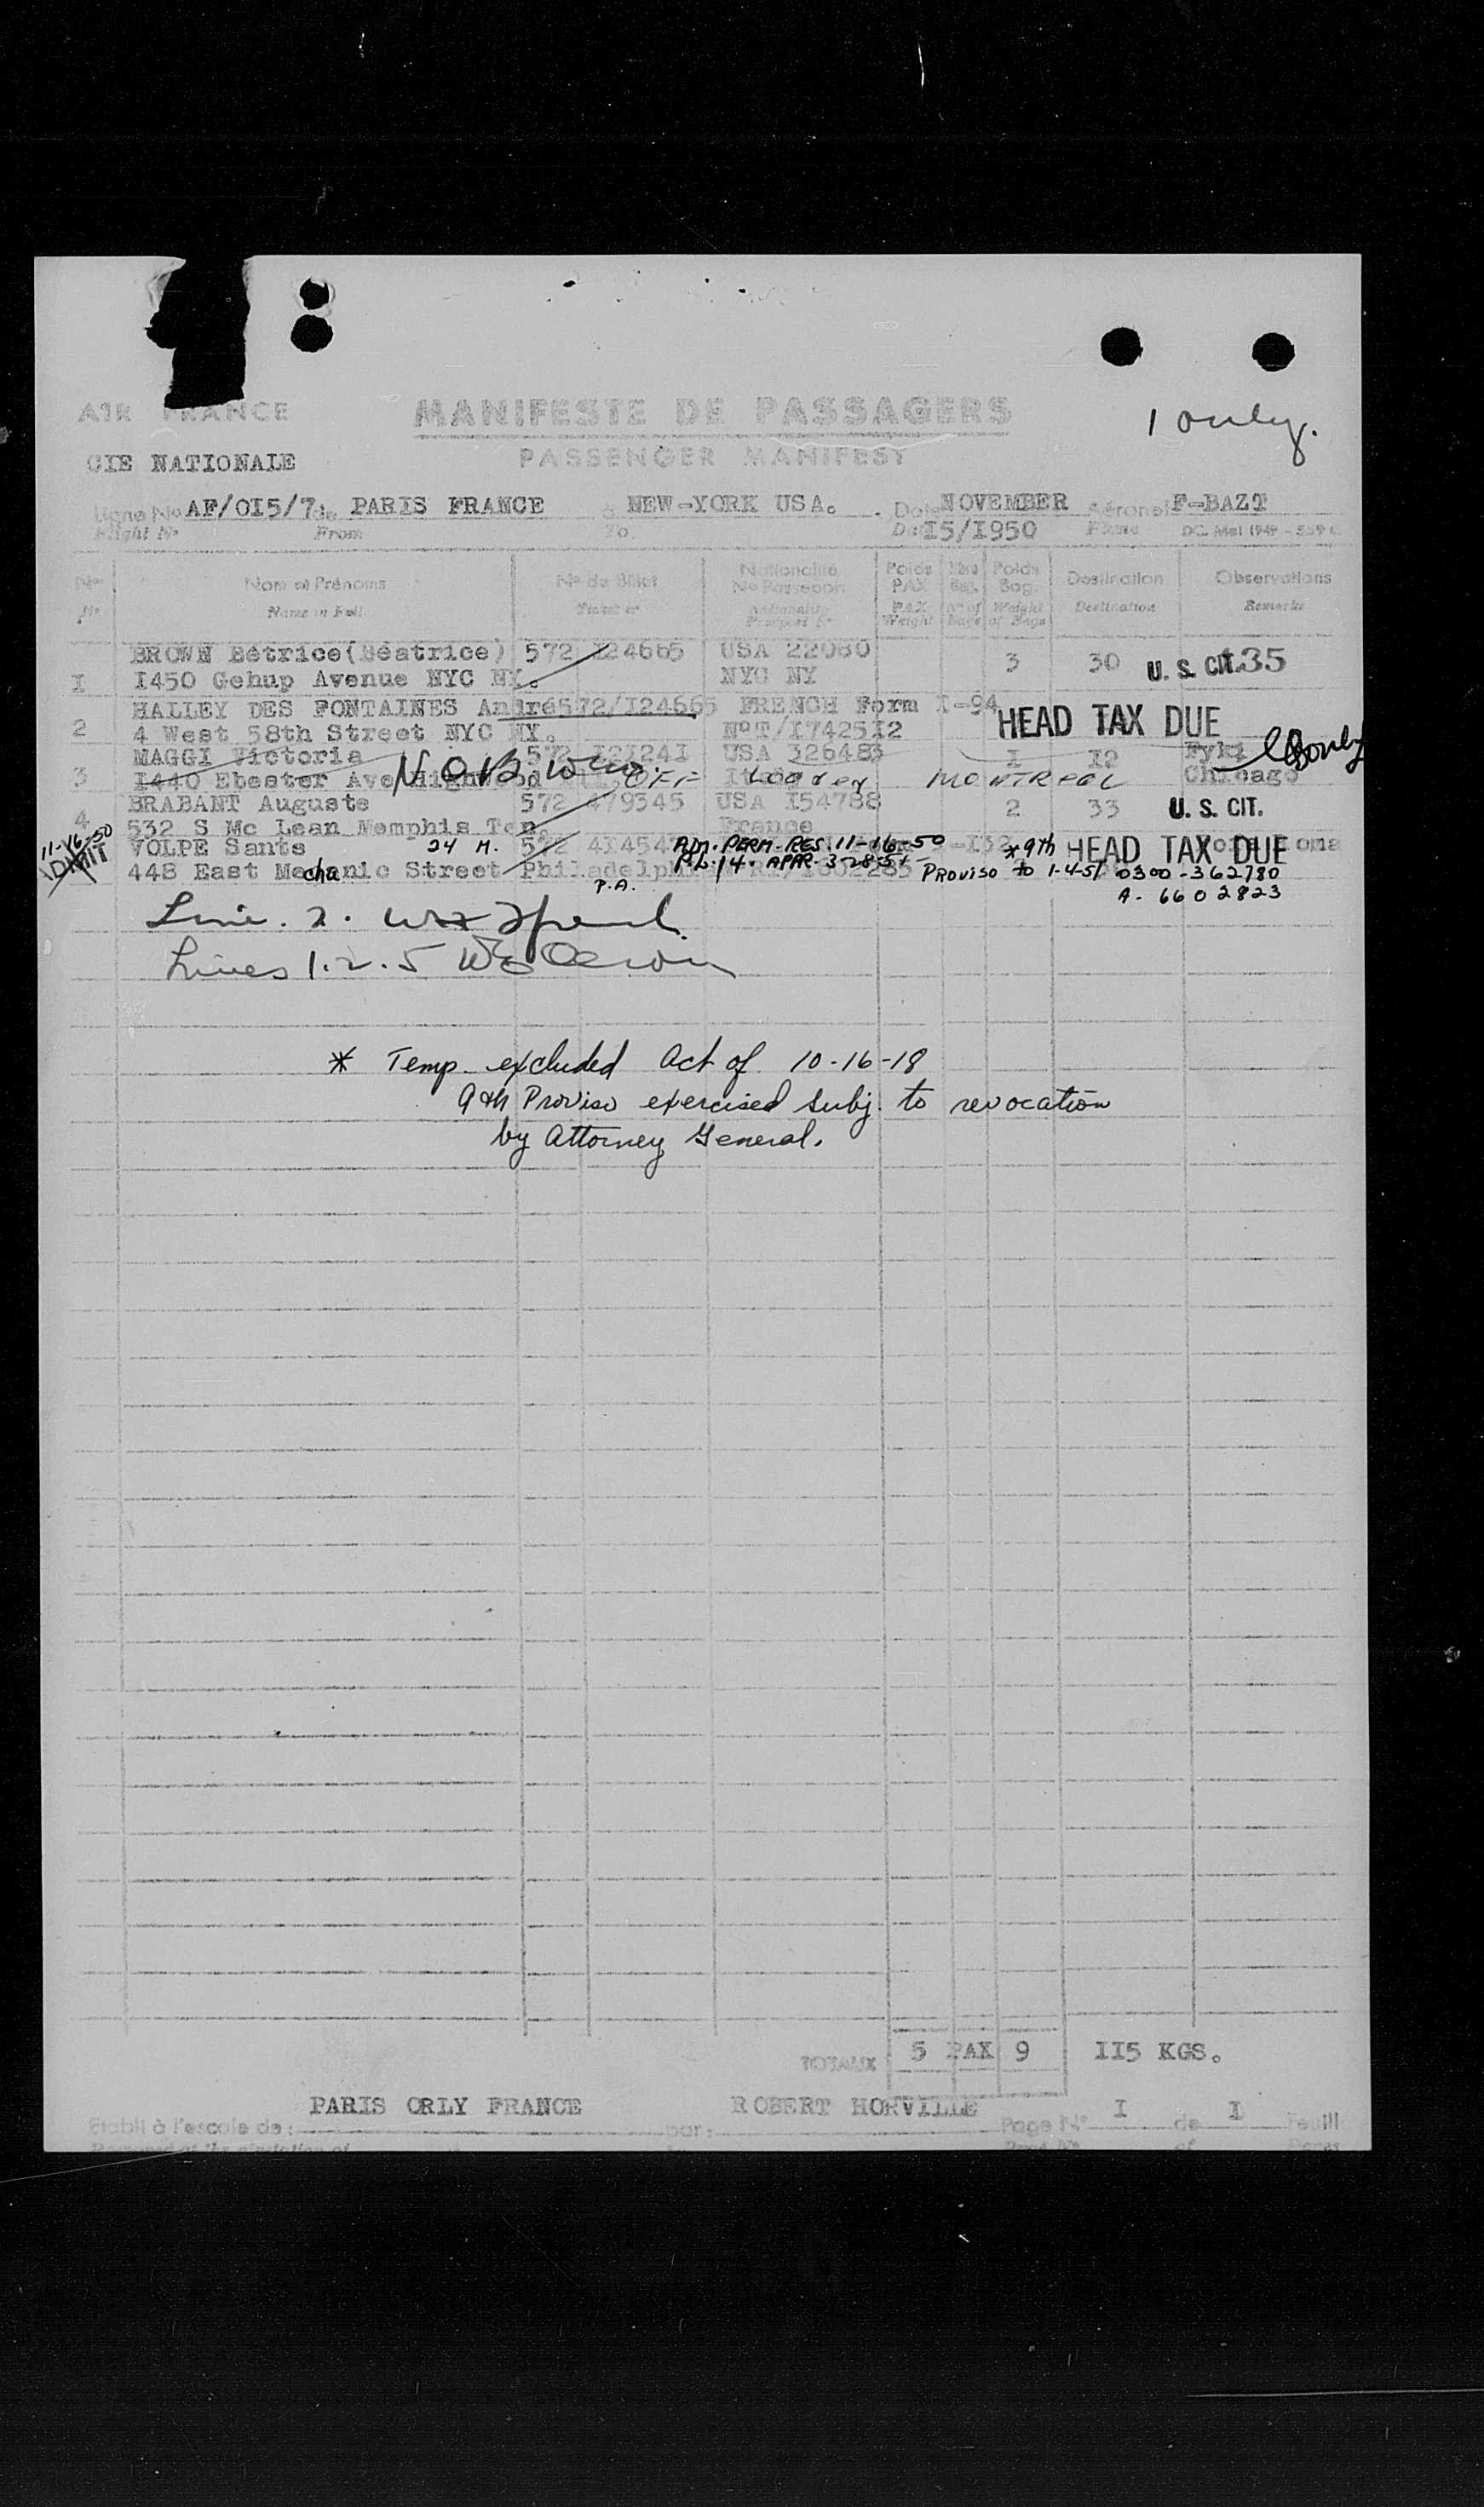 1 only.
AIR FRANCE MANIFESTE DE PASSAGERS
CIE NATIONALE PASSENGER MANIFEST
Ligne No AF/OI5/7 de PARIS FRANCE à NEW-YORK USA. Date NOVEMBER Aéronef F-BAZT
Flight No From To I5/I950 Plane
Nos Nom et Prénoms No de Billet Nationalité No Passeport Poids PAX Poids Bag. Destination Observations
No Name in Full Ticket No Nationality Passport No PAX Weight No of Bags Weight of Bags Destination Remarks
BROWN Bétrice(Béatrice) 572 I24665 USA 22080
I I450 Gehup Avenue NYC NY. NYC NY 3 30 U. S. CIT. 35
HALLEY DES FONTAINES André 572/I24666 FRENCH Form I-94
2 4 West 58th Street NYC NY. NoT/I7425I2 HEAD TAX DUE
MAGGI Victoria 572 I2I24I USA 326483 I I2
3 I440 Ebester Ave Highwood OFF Loaded MONTREAL Chicago
BRABANT Auguste 572 479345 USA I54788 2 33 U. S. CIT.
4 532 S Mc Lean Memphis Ten. France
11-16-50 VOLPE Sante 24 M. 572 ADM. PERM. RES. 11-16-50 *9th HEAD TAX DUE
448 East Mechanic Street Philadelphia PROVISO to 1-4-51 0300-362780
P.A. A-6602823
Line. 2.
Lines 1.2.5
* Temp. excluded Act of 10-16-18
9th Proviso exercised subj. to revocation
by Attorney General.
TOTAUX 5 PAX 9 II5 KGS.
Etabli à l'escale de: PARIS ORLY FRANCE par: ROBERT HORVILLE Page No I de I Feuill